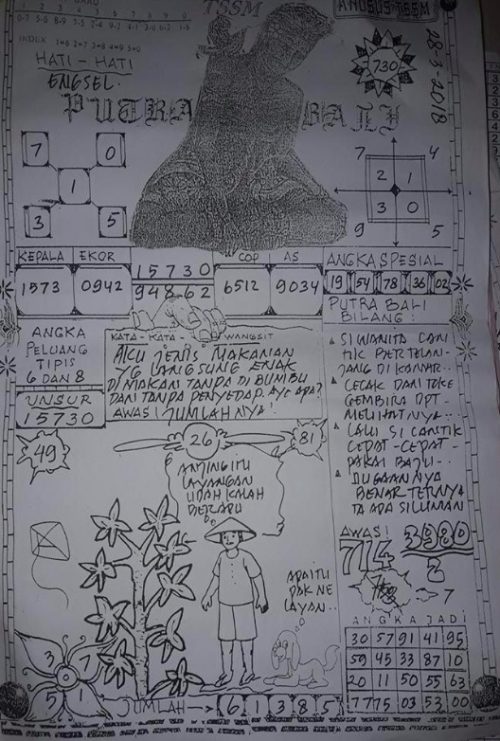 TSSM
KHUSUS TSSM
INDEX 1=6 2=7 3=8 4=9 5=0
HATI - HATI
ENGSEL.
730
28-3-2018
PUTRA BALI
7 0
1
3 5
7 4
2 1
3 0
9 5
KEPALA EKOR
1573 0942
15730
948-62
COP AS
6512 9034
ANGKA SPESIAL
19 54 78 36 02
PUTRA BALI
BILANG :
ANGKA
PELUANG
TIPIS
6 DAN 8
UNSUR
15730
KATA - KATA - WANGSIT
AKU JENIS MAKANAN
YG LANGSUNG ENAK
DI MAKAN TANPA DI BUMBU
DAN TANPA PENYEDAP. AYO APA?
AWAS! JUMLAHNYA!
SI WANITA CAN
TIK BERTELAN-
JANG DI KAMAR..
CECAK DAN TOKE
GEMBIRA DPT-
MELIHATNYA...
LALU SI CANTIK
CEPAT-CEPAT-
PAKAI BAJU-..
DUGAANNYA
BENAR TERNYA
TA ADA SILUMAN
49
26
81
ANJING ITU
LAYANGAN
UDAH KALAH
BERADU
APA ITU
PAK NE
LAYAN..
AWAS!
714
3980
2
7
3 7
5 1
JUMLAH → 6 1 3 8 5
ANGKA JADI
30 57 91 41 95
59 45 33 87 10
20 11 50 55 63
77 75 03 53 00